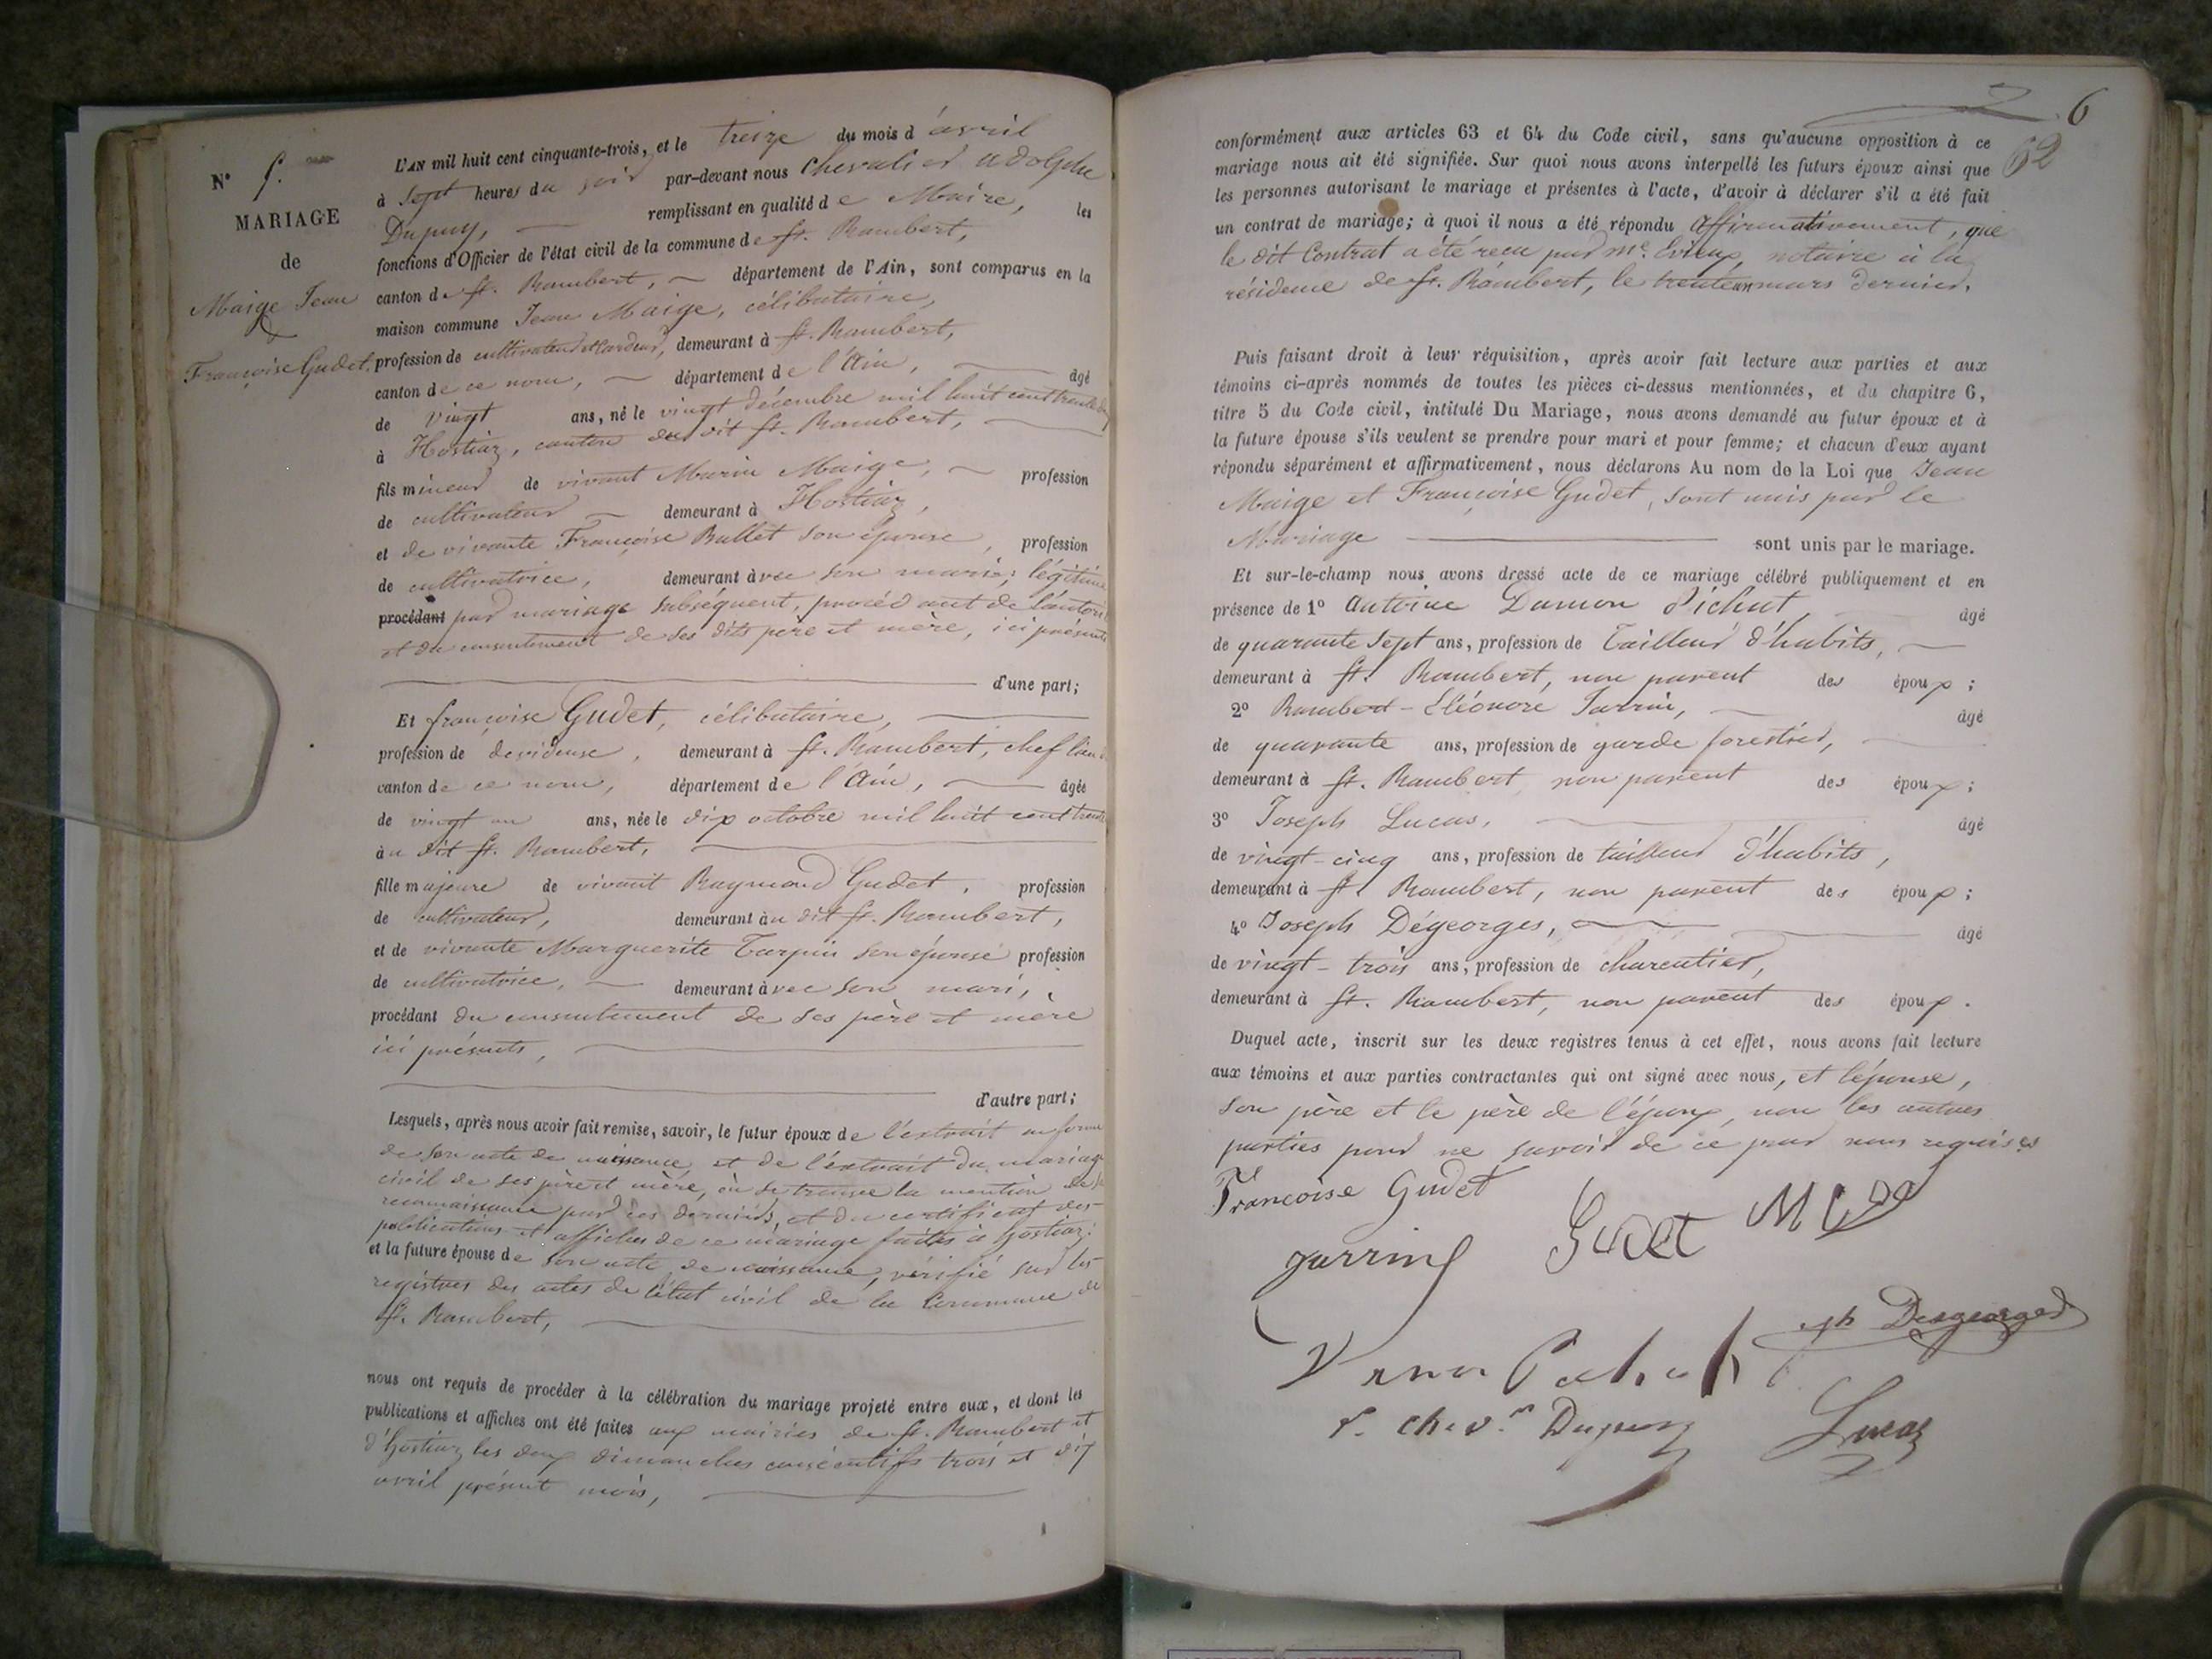 N° 5.
MARIAGE
de
Maige Jean
&
Françoise Gudet.
L'AN mil huit cent cinquante-trois, et le treize du mois d'avril
à sept heures du soir par-devant nous Chevalier Adolphe
Dupuy, remplissant en qualité de Maire, les
fonctions d'Officier de l'état civil de la commune de St. Rambert,
canton de St. Rambert, département de l'Ain, sont comparus en la
maison commune Jean Maige, célibataire,
profession de cultivateur et cardeur, demeurant à St. Rambert,
canton de ce nom, département de l'Ain, âgé
de vingt ans, né le vingt décembre mil huit cent trente
à Hostiaz, canton du dit St. Rambert,
fils mineur de vivant Marin Maige, profession
de cultivateur demeurant à Hostiaz,
et de vivante Françoise Ballet son épouse, profession
de cultivatrice, demeurant avec son mari; légitimé
procédant par mariage subséquent, procédant de l'autorité
et du consentement de ses dits père et mère, ici présents
d'une part;
Et françoise Gudet, célibataire,
profession de devideuse, demeurant à St. Rambert, chef lieu
canton de ce nom, département de l'Ain, âgée
de vingt un ans, née le dix octobre mil huit cent trente
au dit St. Rambert,
fille majeure de vivant Raymond Gudet, profession
de cultivateur, demeurant au dit St. Rambert,
et de vivante Marguerite Tarpin son épouse profession
de cultivatrice, demeurant avec son mari,
procédant du consentement de ses père et mère
ici présents,
d'autre part;
Lesquels, après nous avoir fait remise, savoir, le futur époux de l'extrait en forme
de son acte de naissance, et de l'extrait du mariage
civil de ses père et mère, où se trouve la mention de sa
reconnaissance par ces derniers, et du certificat des
publications et affiches de ce mariage faites à Hostiaz:
et la future épouse de son acte de naissance, vérifié sur les
registres des actes de l'état civil de la Commune de
St. Rambert,
nous ont requis de procéder à la célébration du mariage projeté entre eux, et dont les
publications et affiches ont été faites aux mairies de St. Rambert et
d'hostiaz les deux dimanches consécutifs trois et dix
avril présent mois,
6
62
conformément aux articles 63 et 64 du Code civil, sans qu'aucune opposition à ce
mariage nous ait été signifiée. Sur quoi nous avons interpellé les futurs époux ainsi que
les personnes autorisant le mariage et présentes à l'acte, d'avoir à déclarer s'il a été fait
un contrat de mariage; à quoi il nous a été répondu affirmativement, que
le dit Contrat a été reçu par Me. Evieux, notaire à la
résidence de St. Rambert, le trente un mars dernier.
Puis faisant droit à leur réquisition, après avoir fait lecture aux parties et aux
témoins ci-après nommés de toutes les pièces ci-dessus mentionnées, et du chapitre 6,
titre 5 du Code civil, intitulé Du Mariage, nous avons demandé au futur époux et à
la future épouse s'ils veulent se prendre pour mari et pour femme; et chacun d'eux ayant
répondu séparément et affirmativement, nous déclarons Au nom de la Loi que Jean
Maige et Françoise Gudet, sont unis par le
Mariage sont unis par le mariage.
Et sur-le-champ nous avons dressé acte de ce mariage célébré publiquement et en
présence de 1° Antoine Damon Pichat, âgé
de quarante sept ans, profession de Tailleur d'habits,
demeurant à St. Rambert, non parent des époux;
2° Rambert-Eléonore Jarrin, âgé
de quarante ans, profession de garde forestier,
demeurant à St. Rambert non parent des époux;
3° Joseph Lucas, âgé
de vingt-cinq ans, profession de tailleur d'habits,
demeurant à St. Rambert, non parent des époux;
4° Joseph Dégeorges, âgé
de vingt-trois ans, profession de charcutier,
demeurant à St. Rambert, non parent des époux.
Duquel acte, inscrit sur les deux registres tenus à cet effet, nous avons fait lecture
aux témoins et aux parties contractantes qui ont signé avec nous, et l'épouse,
son père et le père de l'époux, non les autres
parties pour ne savoir de ce par nous requises
Francoise Gudet
Gudet
jarrin
Desgeorges
P. chev.r Dupuy
Lucas